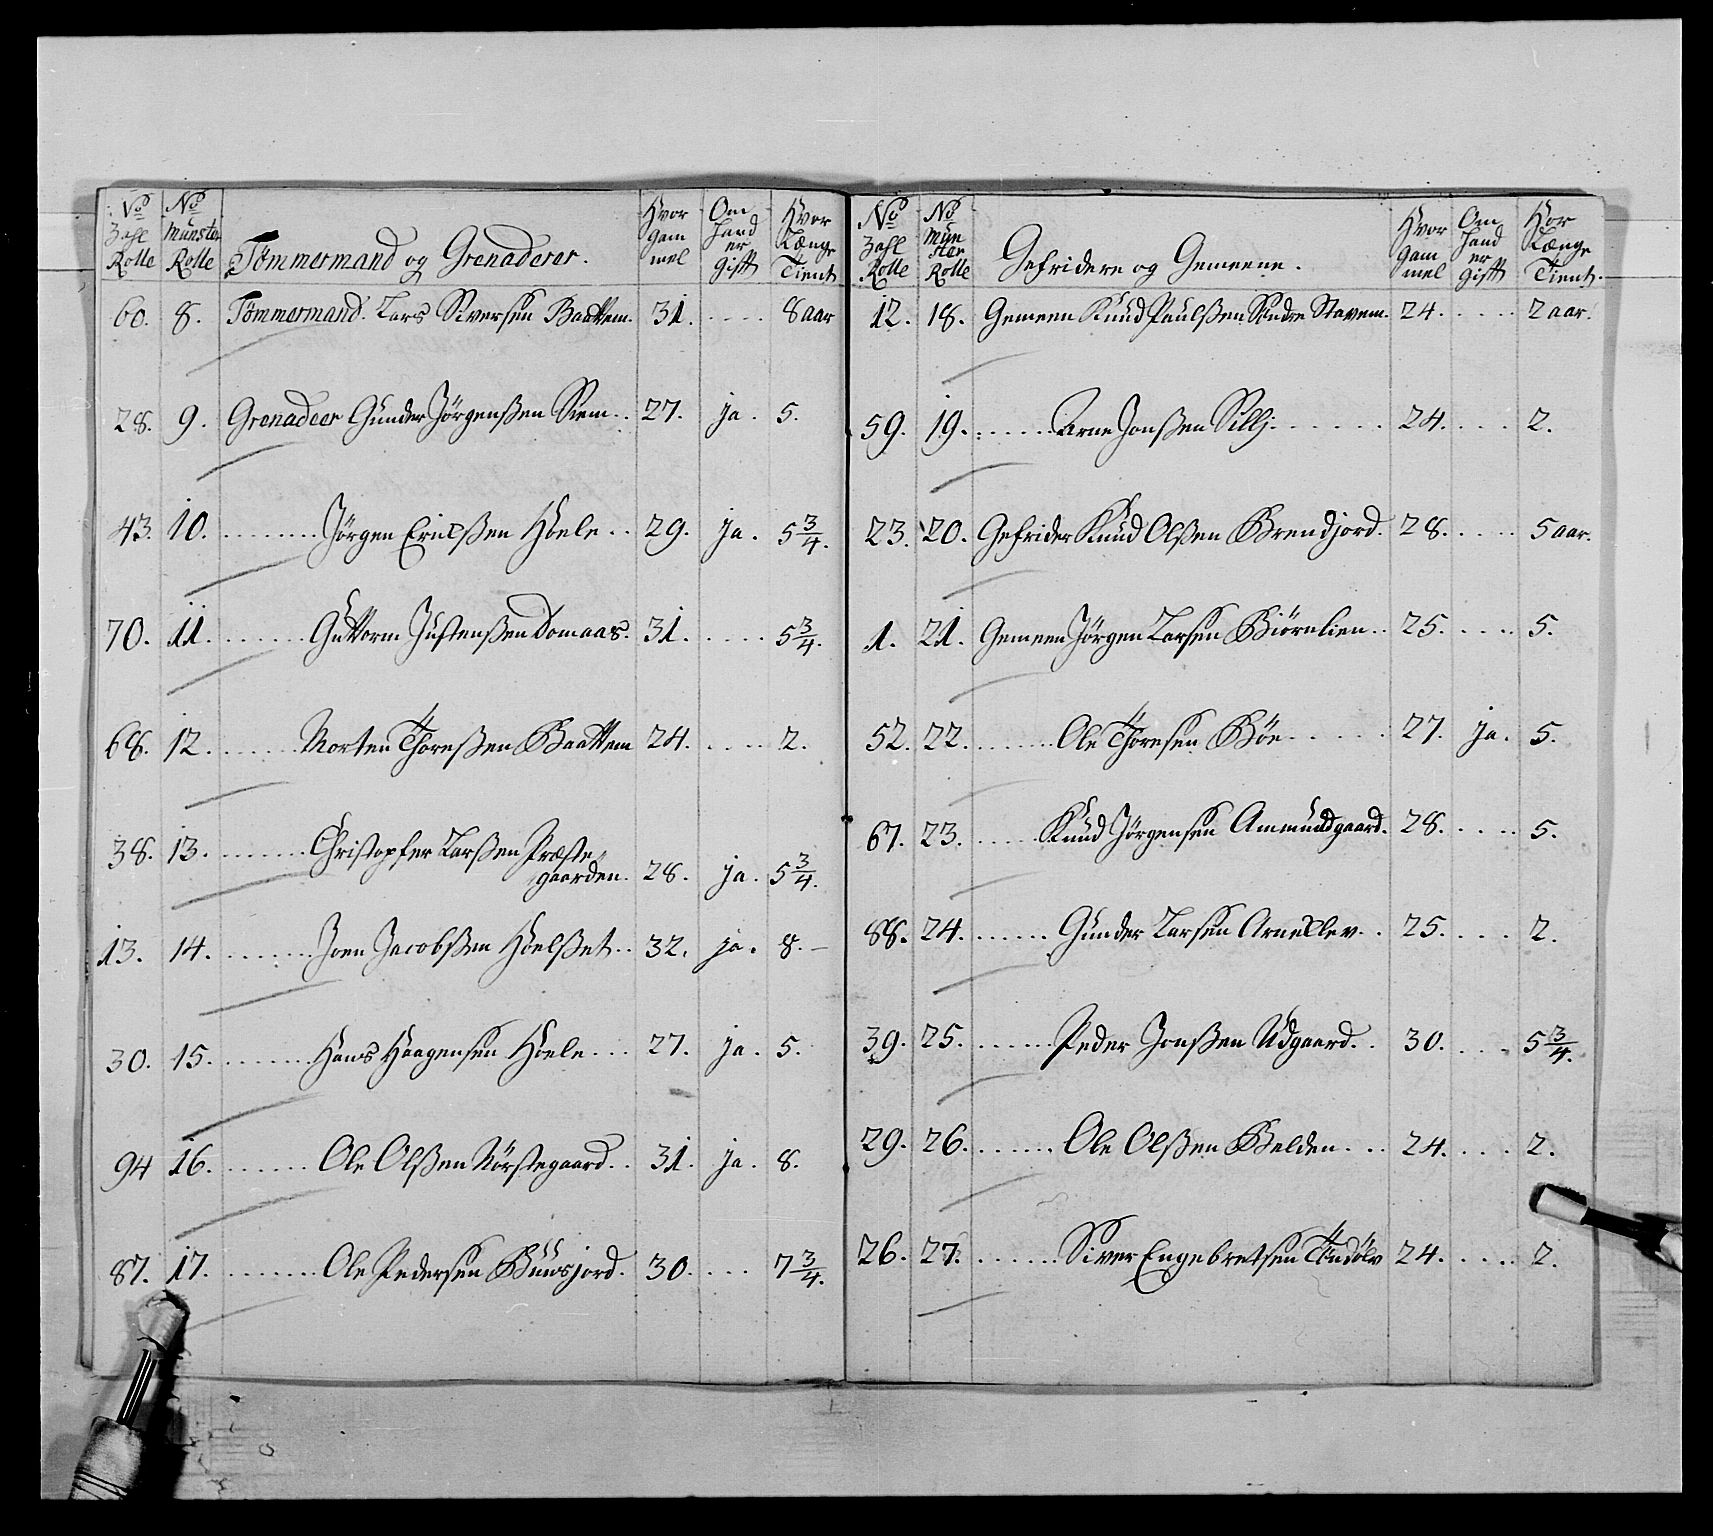 No Zahl Rolle | No Munster Rolle | Tømmermand og Grenaderer. | Hvor gam mel | Om hand er gifft | Hvor Længe Tient
60. 8. Tømmermand. Lars Siversen Baattem. 31. .... 8 aar
28. 9. Grenadeer Gunder Jørgenßen Siem.. 27. ja. 5.
43. 10. ........ Jørgen Erichßen Hoele.. 29. ja. 5 3/4.
70. 11. ....... Guttorm Justenßen Domaas. 31. .... 5 3/4.
68. 12. ....... Morten Thorsßen Baattem 24. .... 2.
38. 13. ....... Christopher Larßen Præste-
gaarden. 28. ja. 5 3/4.
13. 14. ....... Joen Jacobßen Hoelßet.. 32. ja. 8.
30. 15. ....... Hans Haagensen Hoele... 27. ja. 5.
94 16. ....... Ole Olßen Nørstegaard.. 31. ja. 8.
87. 17. ....... Ole Pedersen Buusjord. 30. ... 7 3/4.
No Zahl Rolle | No Mun ster Rolle | Gefridere og Gemeene. | Hvor gam mel | Om hand er gifft | Hor Længe Tient.
12. 18. Gemeen Knud Paulßen Søndre Stavem. 24. ..... 2 aar.
59. 19. ....... Arne Jonßen Sillj....... 24. .... 2.
23. 20. Gefrider Knud Olßen Brendjord. 28. .... 5 aar.
1. 21. Gemeen Jørgen Larsen Biørnlien.. 25. .... 5.
52. 22. ....... Ole Thoresen Bøe...... 27. ja. 5.
67. 23. ..... Knud Jørgensen Amundgaard. 28. .... 5.
88. 24. ...... Gunder Larsen Arneklev.. 25. .... 2.
39. 25. ...... Peder Jonßen Udgaard.. 30. .... 5 3/4.
29. 26. ...... Ole Olßen Kelden... 24. .... 2.
26. 27. ....... Siver Engebretsen 24. .... 2.